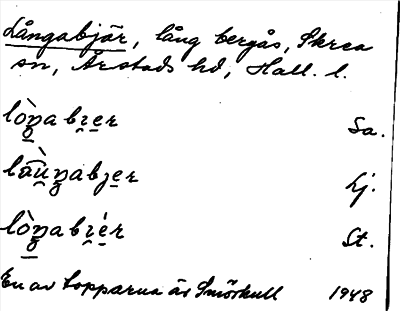 Långabjär, lång bergås, Skrea
sn, Årstads hd, Hall. l.
lòŋabɪ̯er Sa.
laŋabɪer Lj.
lòŋabɪ̯ér St.
En av topparna är Smörkull 1948